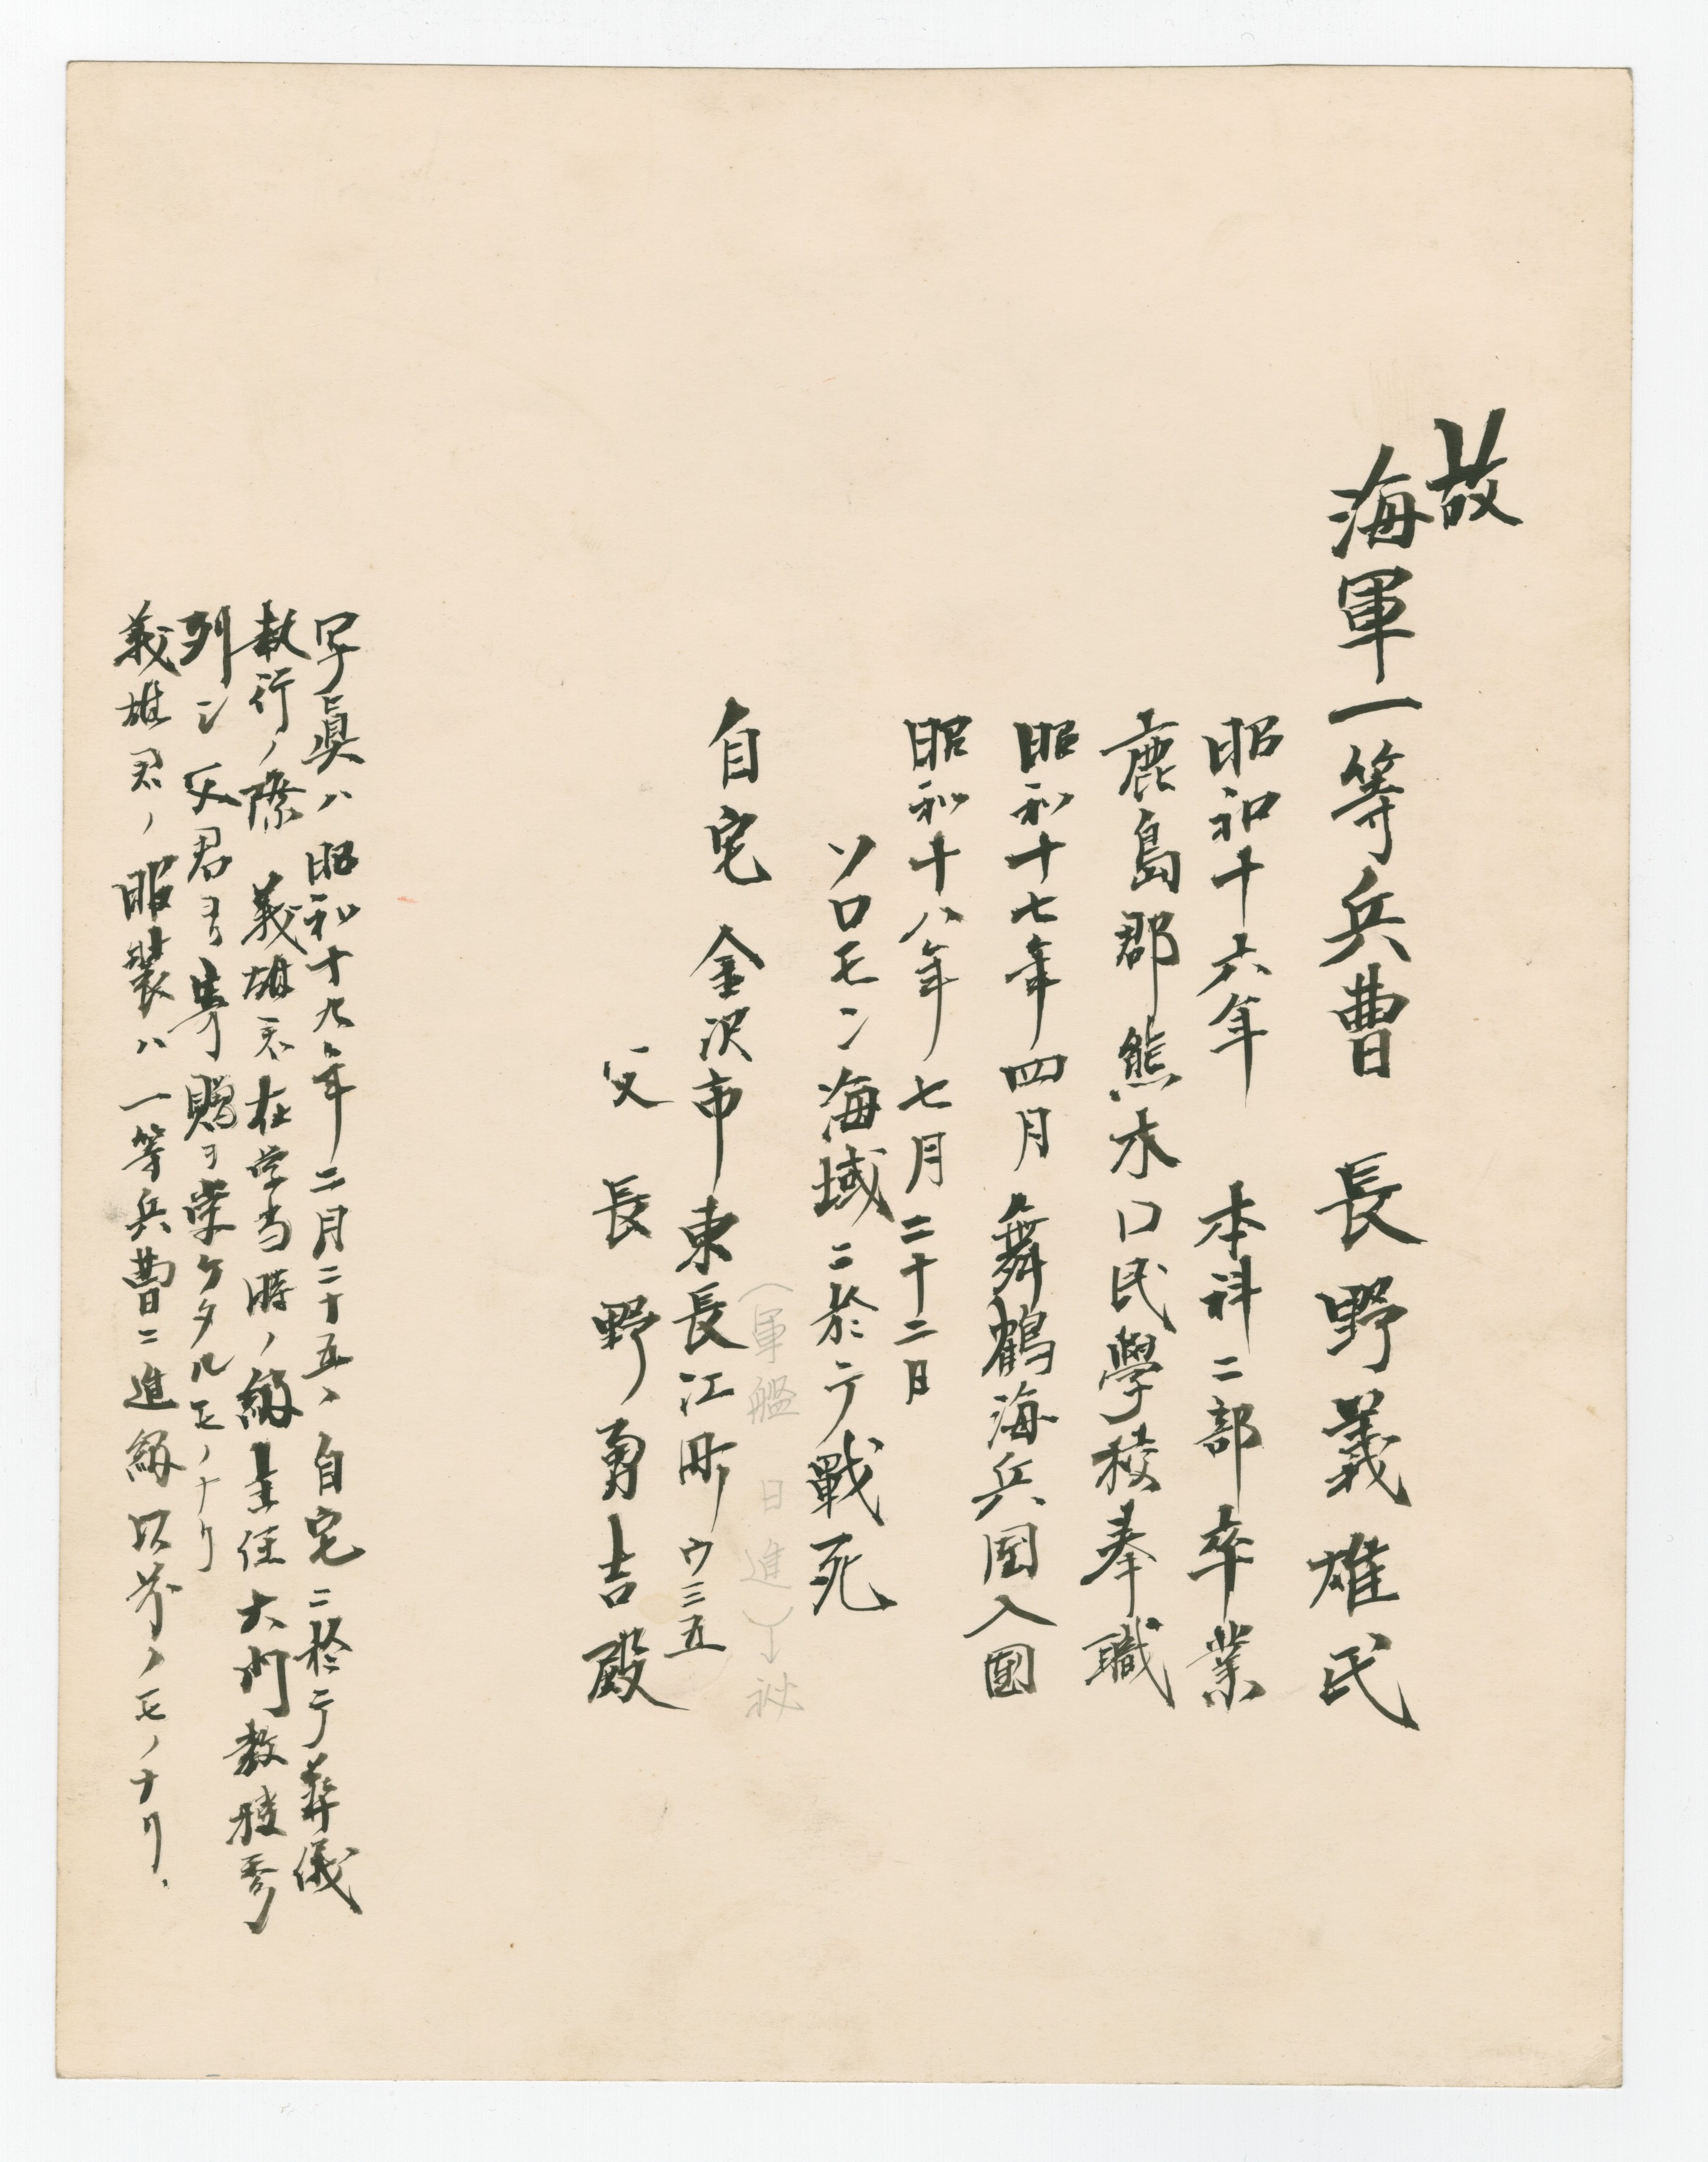 故
海軍一等兵曹 長野義雄氏
昭和十六年 本科二部卒業
鹿島郡熊木口民學校奉職
昭和十七年四月 舞鶴海兵団入團
昭和十八年七月二十二日
ソロモン海域ニ於テ戰死
(軍艦 日進)丁秘
自宅 金沢市東長江町ウ三五
父 長野勇吉殿
写真ハ昭和十九年二月二十五、自宅ニ於テ葬儀
執行ノ際 義雄君在学当時ノ級主任大門教授参
列シ父君ヨリ寄贈ヲ受ケタルモノナリ
義雄君ノ服装ハ一等兵曹ニ進級以前ノモノナリ.